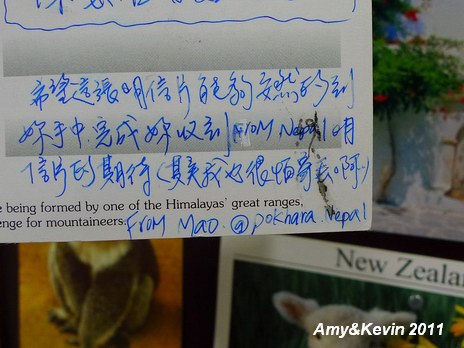 希望這張明信片能夠安然的到
妳手中.完成妳收到From Nepal明
信片的期待(其實我也很怕寄丟啊~)
being formed by one of the Himalayas' great ranges,
enge for mountaineers. From Mao. @pokhara. Nepal
New Zeala
Amy&Kevin 2011